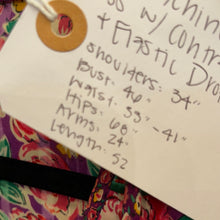 w/ contr
+ Elastic Dro
shoulders: 34"
Bust: 46"
Waist: 33" - 41"
Hips: 68"
Arms: 24"
Length: 52